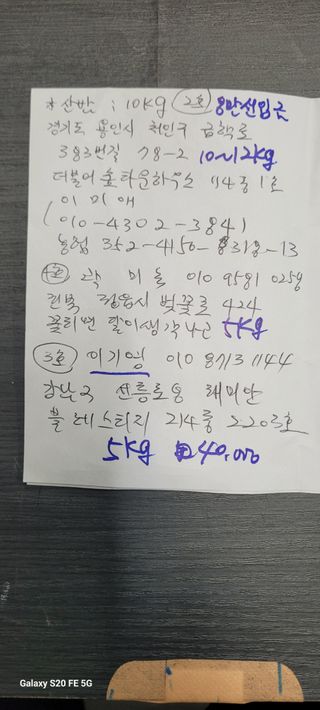 * 산반 : 10kg (2호) 8만선입금
경기도 용인시 처인구 금학로
383번길 78-2 10~12kg
더불어숲타운하우스 114동 1호
이미애
010-4302-3841
농협 352-4150-8318-13
곽미늘 010 9581 0259
전북 정읍시 벚꽃로 424
꽃피면 달이생각나고 5kg
(3호) 이기영 010 8713 1144
강남구 선릉로 래미안
블레스티지 214동 2203호
5kg 40,000
Galaxy S20 FE 5G